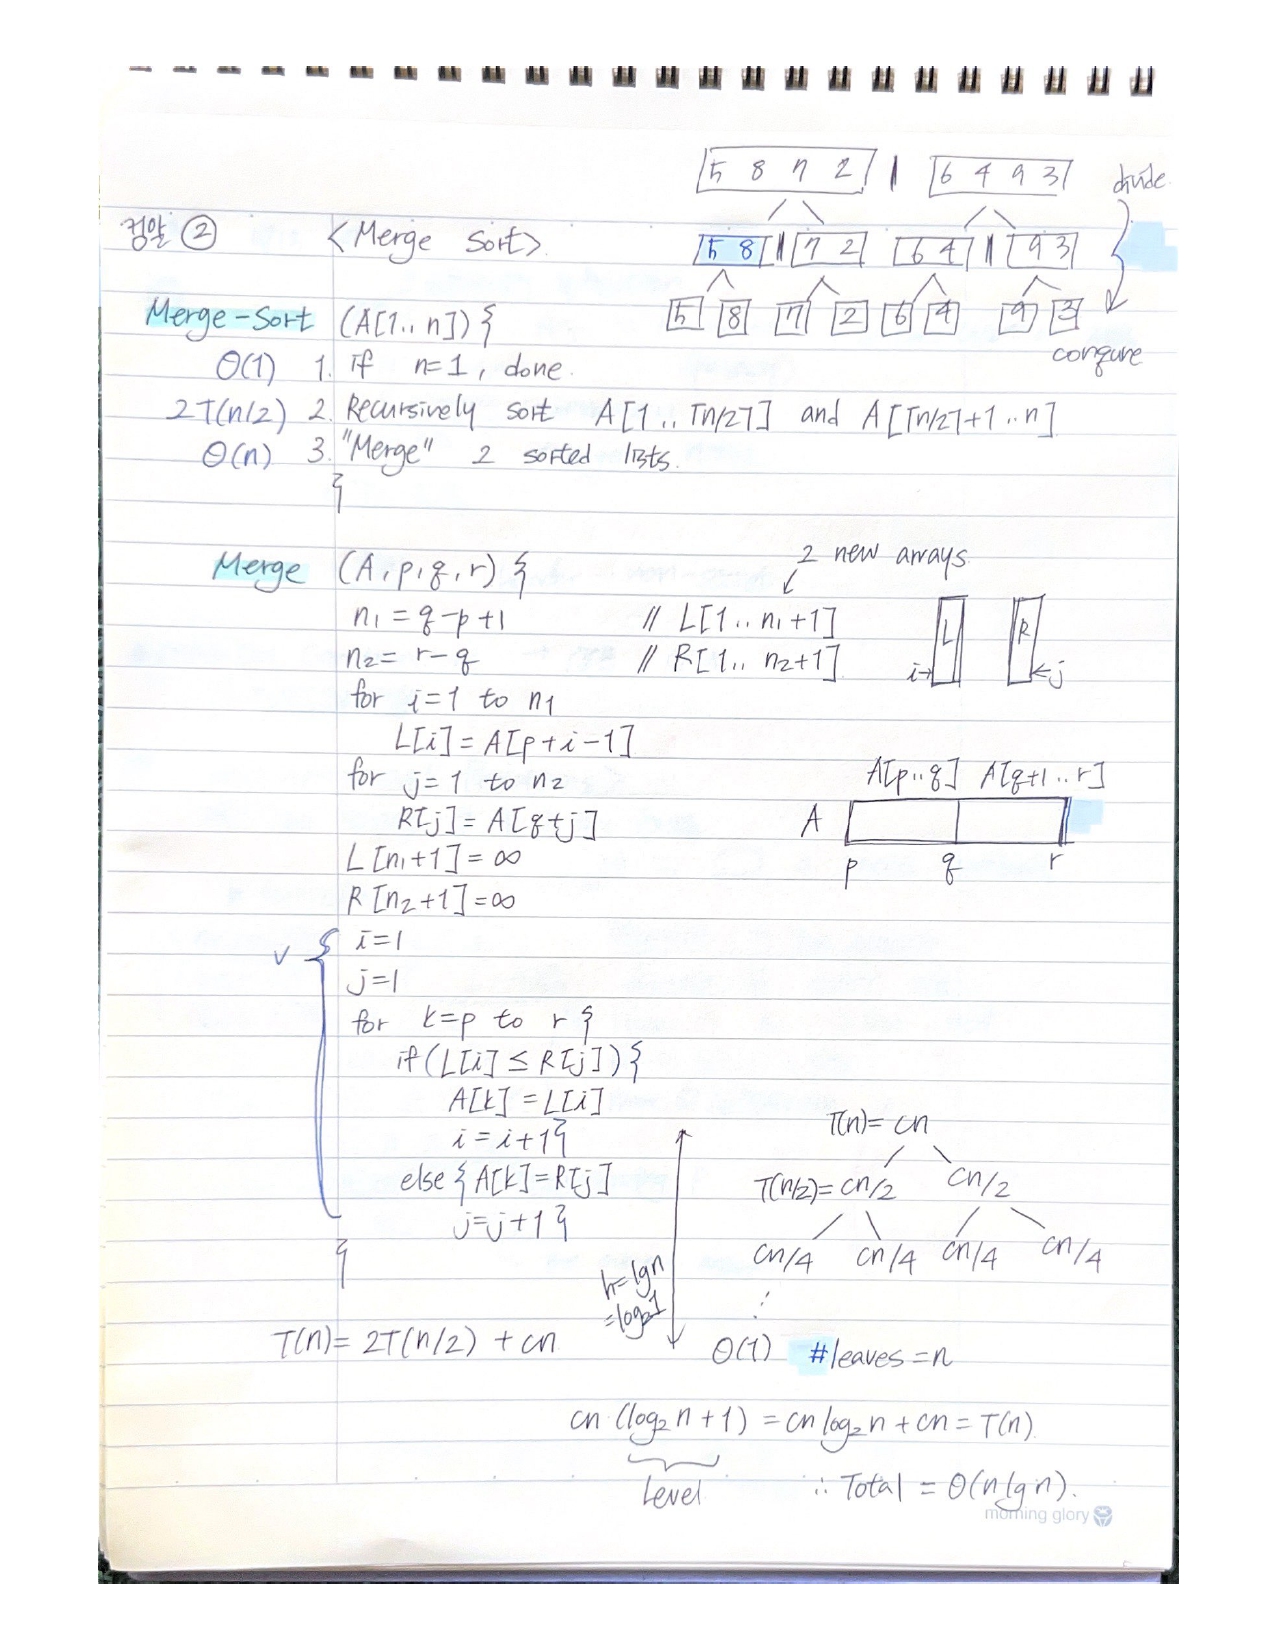 5 8 7 2 | 6 4 9 3
divide
컴알 ② <Merge Sort>
5 8 | 7 2 6 4 | 9 3
5 8 7 2 6 4 9 3
conqure
Merge-Sort (A[1..n]) {
Θ(1) 1. if n=1, done.
2T(n/2) 2. Recursively sort A[1..⌈n/2⌉] and A[⌈n/2⌉+1..n]
Θ(n) 3. "Merge" 2 sorted lists.
}
2 new arrays
Merge (A,p,q,r) {
n₁ = q-p+1 // L[1..n₁+1]
n₂ = r-q // R[1..n₂+1]
L R
i→ ←j
for i=1 to n₁
L[i] = A[p+i-1]
for j=1 to n₂
R[j] = A[q+j]
A[p..q] A[q+1..r]
A
p q r
L[n₁+1] = ∞
R[n₂+1] = ∞
v { i=1
j=1
for k=p to r {
if (L[i] ≤ R[j]) {
A[k] = L[i]
i = i+1 }
else { A[k]=R[j]
j=j+1 }
}
T(n)= cn
T(n/2)= cn/2 cn/2
cn/4 cn/4 cn/4 cn/4
⋮
h=lgn
=log₂1
Θ(1) #leaves = n
T(n)= 2T(n/2) + cn
cn (log₂n+1) = cn log₂n + cn = T(n).
Level
∴ Total = Θ(n lg n).
morning glory